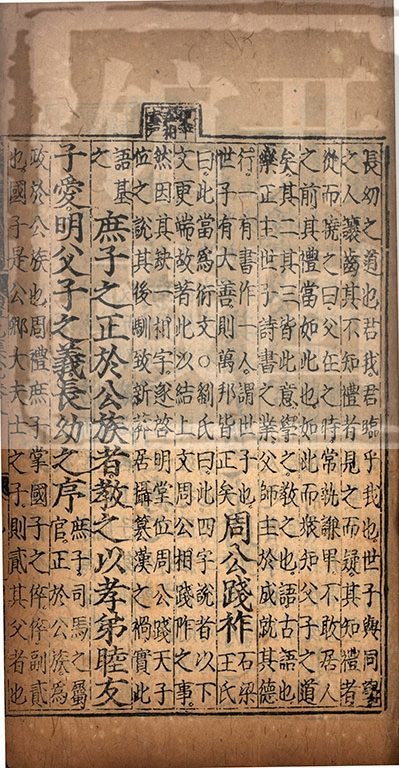 長幼之道也君我君臨乎我也世子與同學
之人讓齒其不知禮者見之而疑其知禮者
從而曉之曰父在之時常執謙卑不敢居人
之前其禮當如此也如此而衆知父子之道
矣其二其三皆此意學之教之也語古語也
樂正主世子詩書之業父師主於成就其德
行一有書作一人謂世子也
世子有大善則萬邦皆正矣
周公踐祚
石梁
王氏
曰此當爲衍文○劉氏曰此四字說者以下
文更端故著此以結上文周公相踐阼之事
然因其缺相字遂啓明堂位周公踐天子
位之說其後馴致新莽居攝篡漢之禍實此
語基
之
庶子之正於公族者教之以孝弟睦友
子愛明父子之義長幼之序
庶子司馬之屬
官正於公族爲
政於公族也周禮庶子掌國子之倅倅副貳
也國子是公卿大夫士之子則貳其父者也